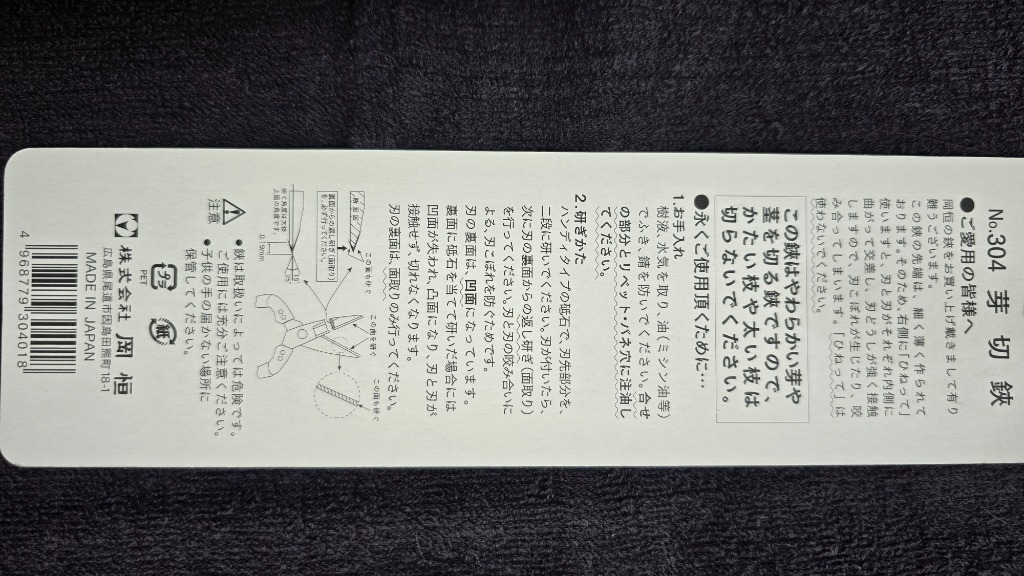 No.304 芽切鋏
●ご愛用の皆様へ
岡恒の鋏をお買い上げ戴きまして有り
難うございます。
この鋏の先端は、細く薄く作られて
おります。そのため、右側に「ひねって」
使いますと、刃と刃がそれぞれ内側に
曲がって交差し、刃どうしが強く接触
しますので、刃こぼれが生じたり、咬
み合ってしまいます。「ひねって」は
使わないでください。
この鋏はやわらかい芽や
茎を切る鋏ですので、
かたい枝や太い枝は
切らないでください。
●永くご使用頂くために…
1.お手入れ
樹液、水気を取り、油(ミシン油等)
でふき、錆を防いでください。合せ
の部分とリベット・バネ穴に注油し
てください。
2.研ぎかた
ハンディタイプの砥石で、刃先部分を、
二段に研いでください。刃が付いたら、
次に刃の裏面からの返し研ぎ(面取り)
を行ってください。刃と刃の咬み合いに
よる、刃こぼれを防ぐためです。
刃の裏面は、凹面になっています。
裏面に砥石を当てて研いだ場合には
凹面が失われ、凸面になり、刃と刃が
接触せず、切れなくなります。
刃の裏面は、面取りのみ行ってください。
この面も研ぐ
断面図
裏面からの返し研ぎ(面取り)
を、必ず行ってください。
研ぐ角度は大体
上図の角度です。
0.1mm
この面を研ぐ
この面も研ぐ
注意
●鋏は取扱いによっては危険です。
ご使用には充分ご注意ください。
●子供の手の届かない場所に
保管してください。
プラ
PET
紙
株式会社 岡恒
広島県尾道市因島田熊町18-1
MADE IN JAPAN
4 968779 304018